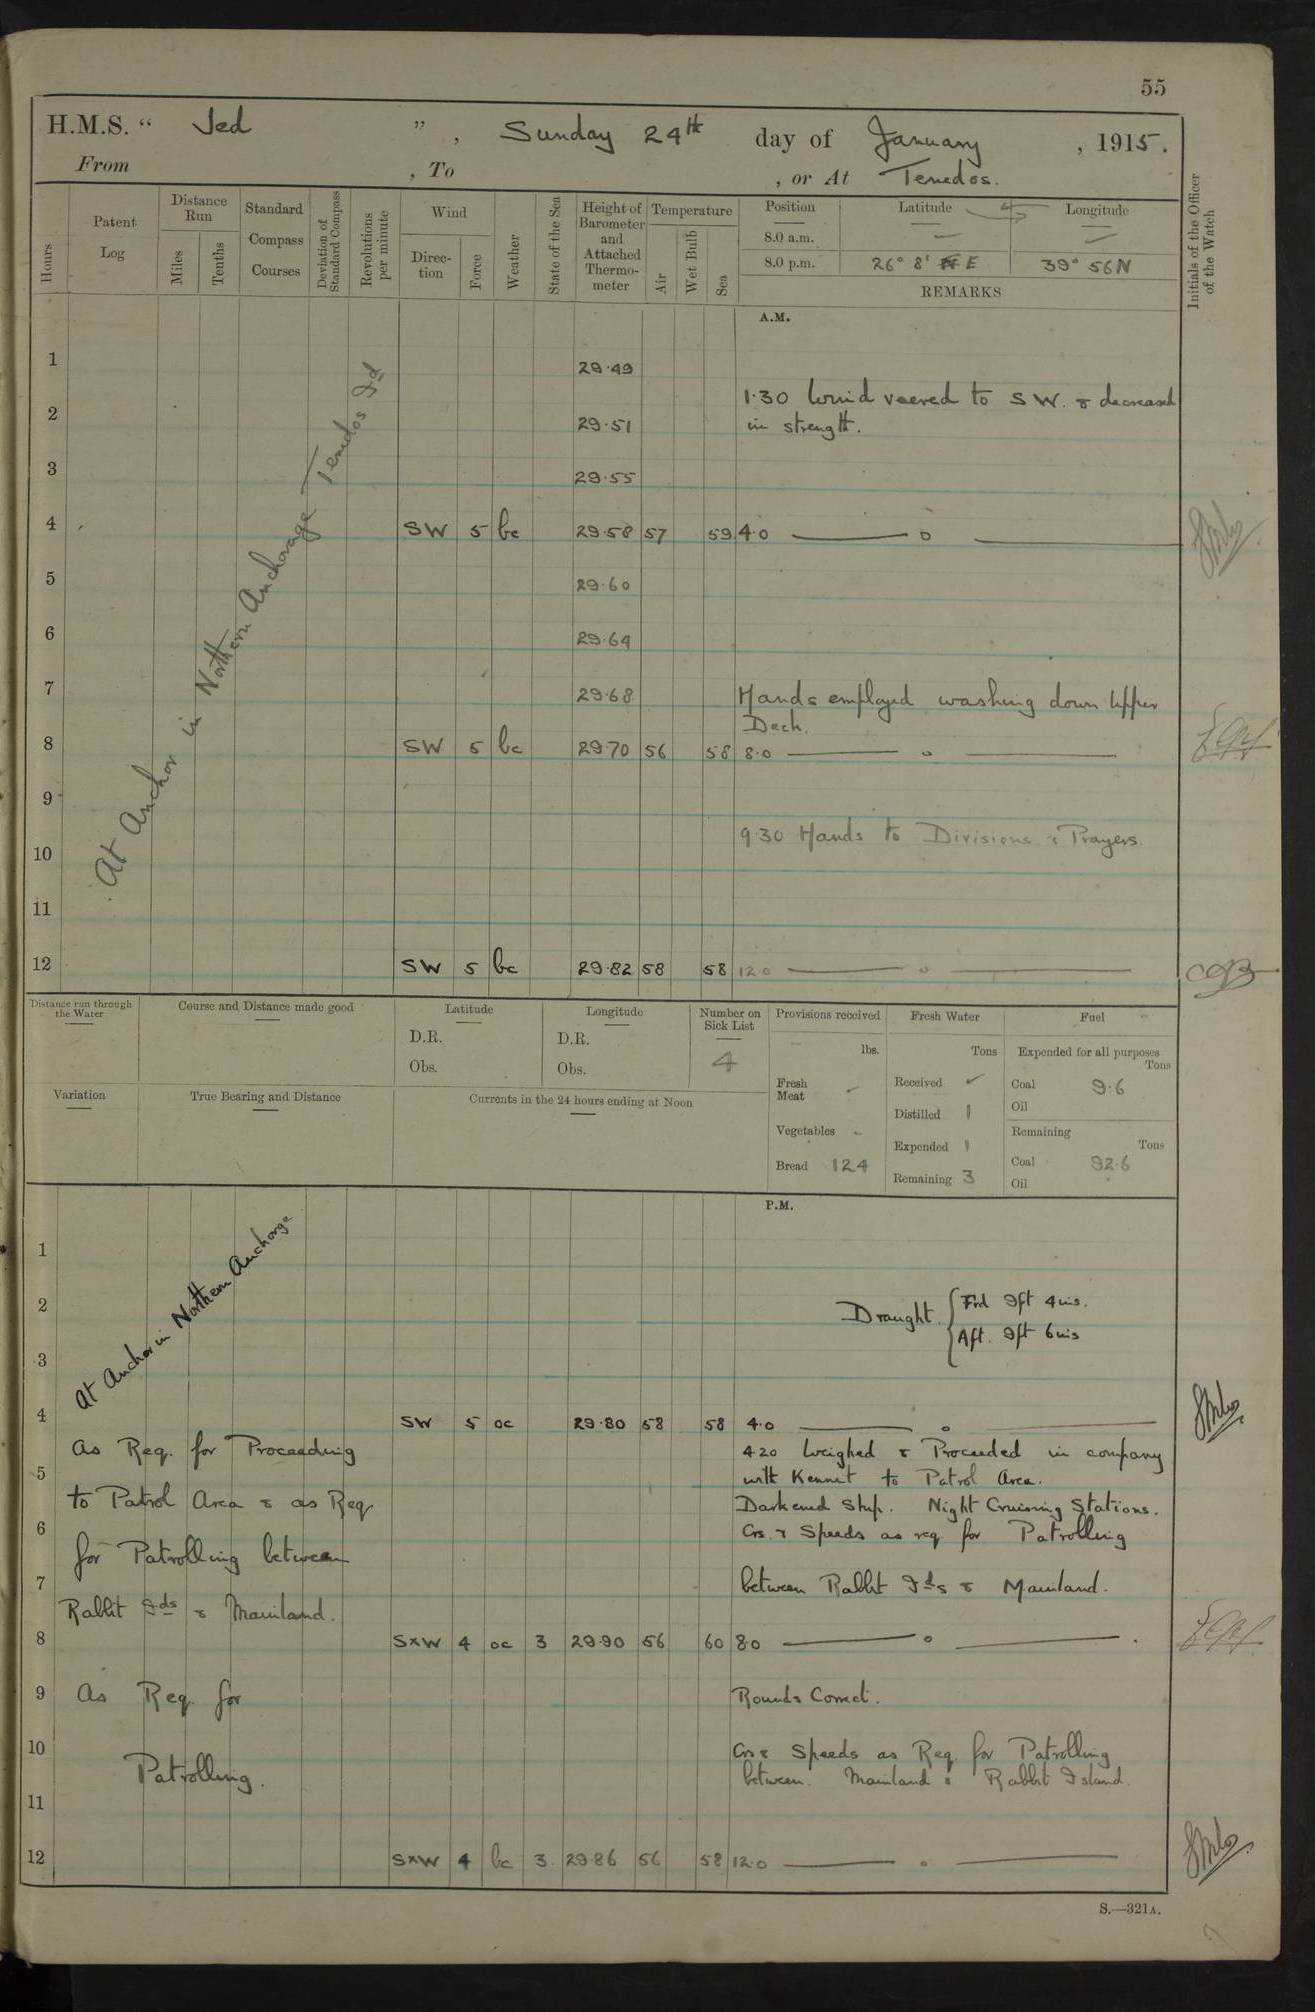 55
H.M.S. “ Jed ” , Sunday 24th day of January , 1915.
From , To , or At Tenedos.
Hours
Patent Log
Distance Run
Miles
Tenths
Standard Compass Courses
Deviation of Standard Compass
Revolutions per minute
Wind
Direction
Force
Weather
State of the Sea
Height of Barometer and Attached Thermometer
Temperature
Air
Wet Bulb
Sea
Position Latitude Longitude
8.0 a.m.
8.0 p.m. 26° 8' E 39° 56 N
REMARKS
Initials of the Officer of the Watch
A.M.
At Anchor in Northern Anchorage Tenedos Id
1 29.49
1.30 Wind veered to SW. & decreased
2 29.51 in strength.
3 29.55
4 SW 5 bc 29.58 57 59 4.0
5 29.60
6 29.64
7 29.68 Hands employed washing down Upper
Deck.
8 SW 5 bc 29.70 56 58 8.0
9
9.30 Hands to Divisions & Prayers.
10
11
12 SW 5 bc 29.82 58 58 12.0
Distance run through the Water
Course and Distance made good
Latitude
D.R.
Obs.
Longitude
D.R.
Obs.
Number on Sick List
4
Provisions received
lbs.
Fresh Meat
Vegetables
Bread 124
Fresh Water
Tons
Received
Distilled 1
Expended 1
Remaining 3
Fuel
Expended for all purposes
Tons
Coal 9.6
Oil
Remaining
Tons
Coal 92.6
Oil
Variation
True Bearing and Distance
Currents in the 24 hours ending at Noon
P.M.
At Anchor in Northern Anchorage
1
2 Draught { Frd 9ft 4ins.
Aft. 9ft 6ins
3
4 SW 5 oc 29.80 58 58 4.0
As Req. for Proceeding
4.20 Weighed & Proceeded in company
5 with Kennet to Patrol Area.
to Patrol Area & as Req.
Darkened Ship. Night Cruising Stations.
6 Crs. & Speeds as req for Patrolling
for Patrolling between
7 between Rabbit Ids & Mainland.
Rabbit Ids & Mainland.
8 SxW 4 oc 3 29.90 56 60 8.0
9 As Req. for Rounds Correct.
10 Crs & Speeds as Req. for Patrolling
Patrolling. between Mainland & Rabbit Island.
11
12 SxW 4 bc 3 29.86 56 58 12.0
S.—321A.